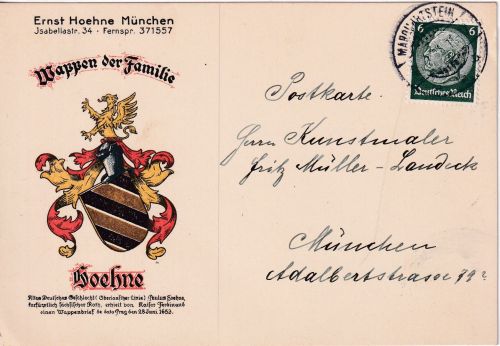 Ernst Hoehne München
Jsabellastr. 34 · Fernspr. 371557
Wappen der Familie
Hoehne
Altes Deutsches Geschlecht (Oberlausitzer Linie) Paulus Hoehne,
kurfürstlich Sächsischer Rath, erhielt von Kaiser Ferdinand
einen Wappenbrief de dato Prag den 28 Juni 1653.
MARQUARTSTEIN
6 6
Deutsches Reich
Postkarte.
Herrn Kunstmaler
Fritz Müller-Landeck
München
Adalbertstrasse